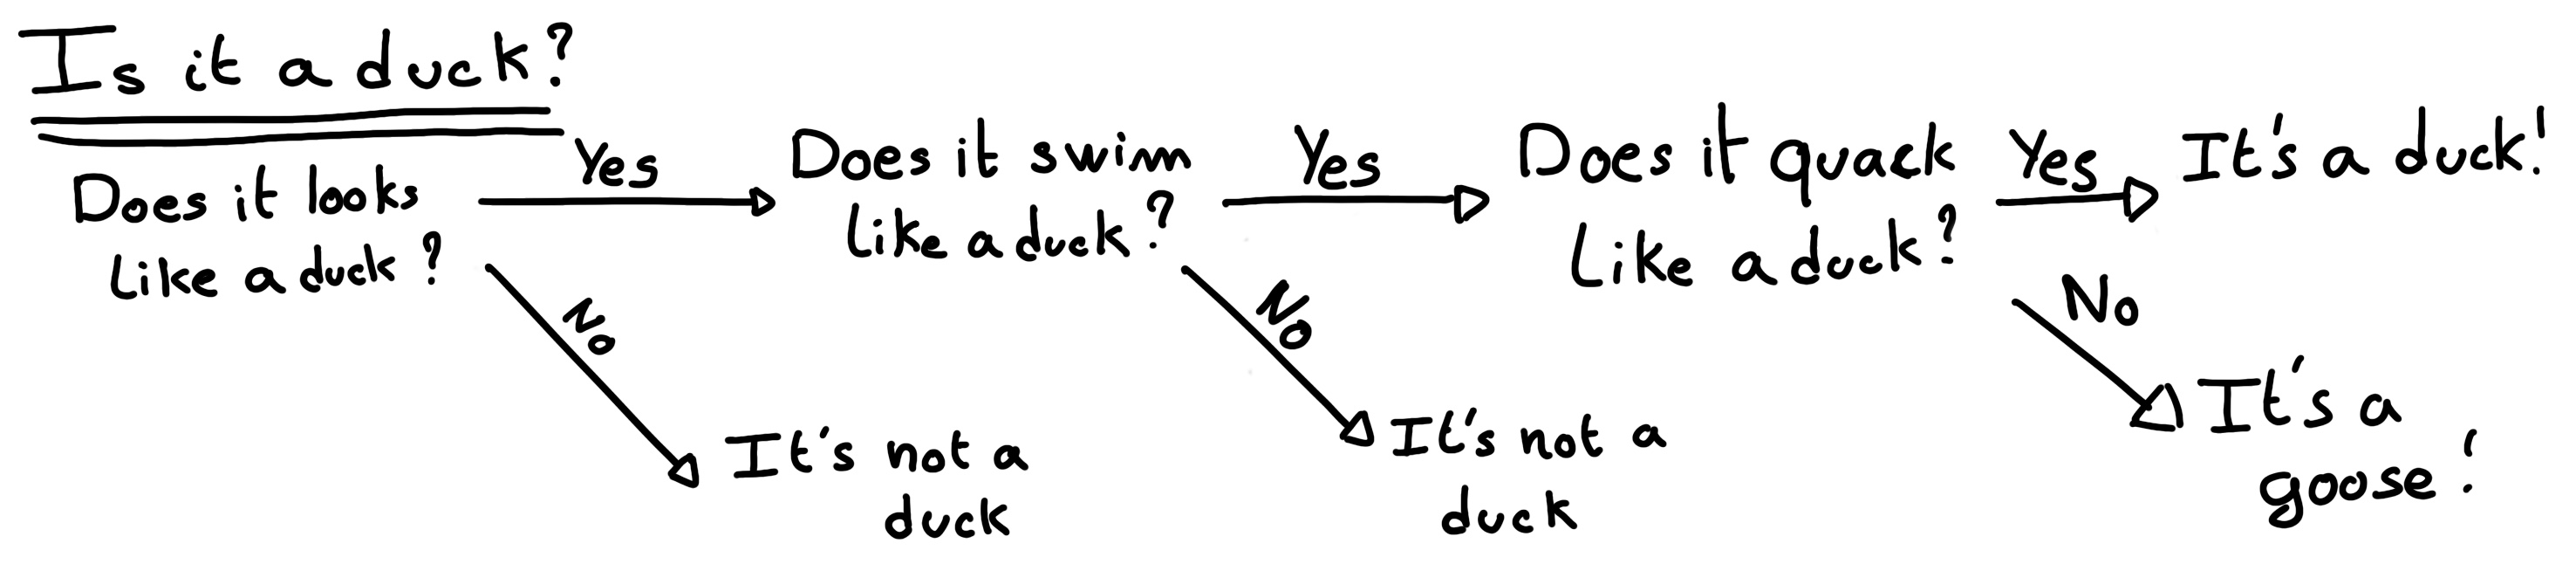 Is it a duck?
Does it looks
like a duck?
Yes
No
It's not a
duck
Does it swim
like a duck?
Yes
No
It's not a
duck
Does it quack
like a duck?
Yes
It's a duck!
No
It's a
goose!